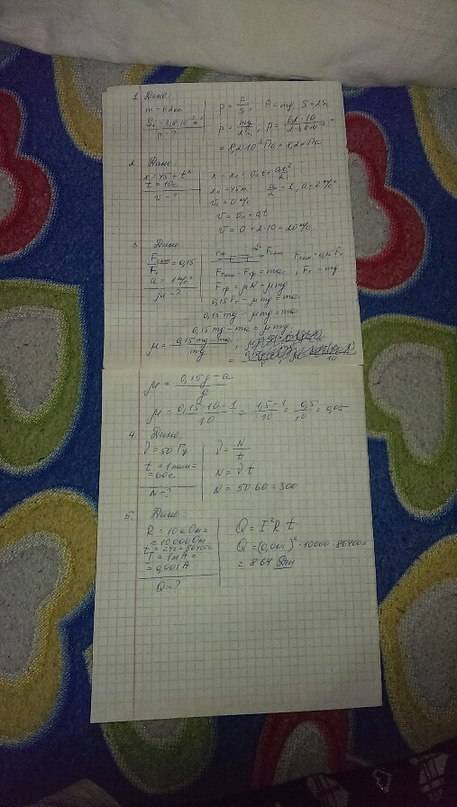 1. Дано:
P = F/S, F = mg, S = 2S₁
P - ?
2. Дано:
x = 45 + t²
t = 10 с
v - ?
v₀ = 0 м/с
v = v₀ + at
v = 0 + 2·10 = 20 м/с
3. Дано
Fтяги/Fт = 0,15
a = 1 м/с²
μ - ?
Fтяги - Fтр = ma
Fтр = μN = μmg
0,15Fт - μmg = ma
0,15mg - μmg = ma
0,15mg - ma = μmg
μ = (0,15mg - ma)/mg
μ = (0,15g - a)/g
μ = (0,15·10 - 1)/10 = (1,5 - 1)/10 = 0,5/10 = 0,05
4. Дано:
ν = 50 Гц
t = 1 мин =
= 60 с
N - ?
ν = N/t
N = ν t
N = 50·60 = 300
5. Дано:
R = 10 кОм =
= 10000 Ом
t = 24ч = 86400с
I = 1мА =
= 0,001 А
Q - ?
Q = I²R t
Q = (0,001)²·10000·86400 =
= 864 Дж